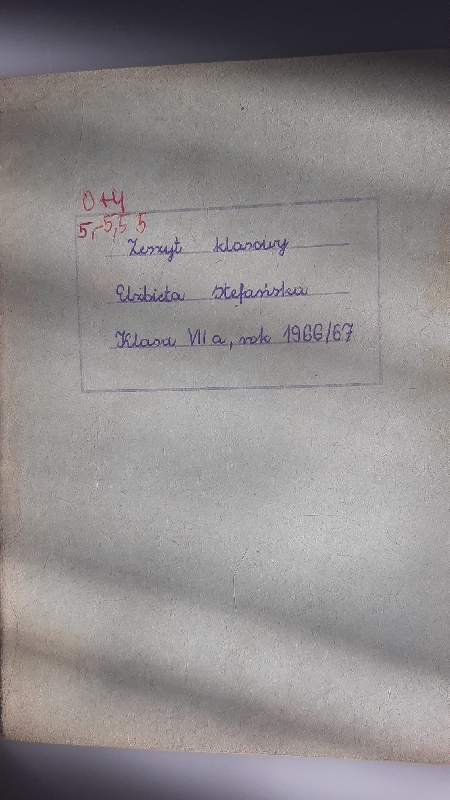 0 +4
5,-5,5 5
Zeszyt klasowy
Elżbieta Stefańska
Klasa VII a, rok 1966/67